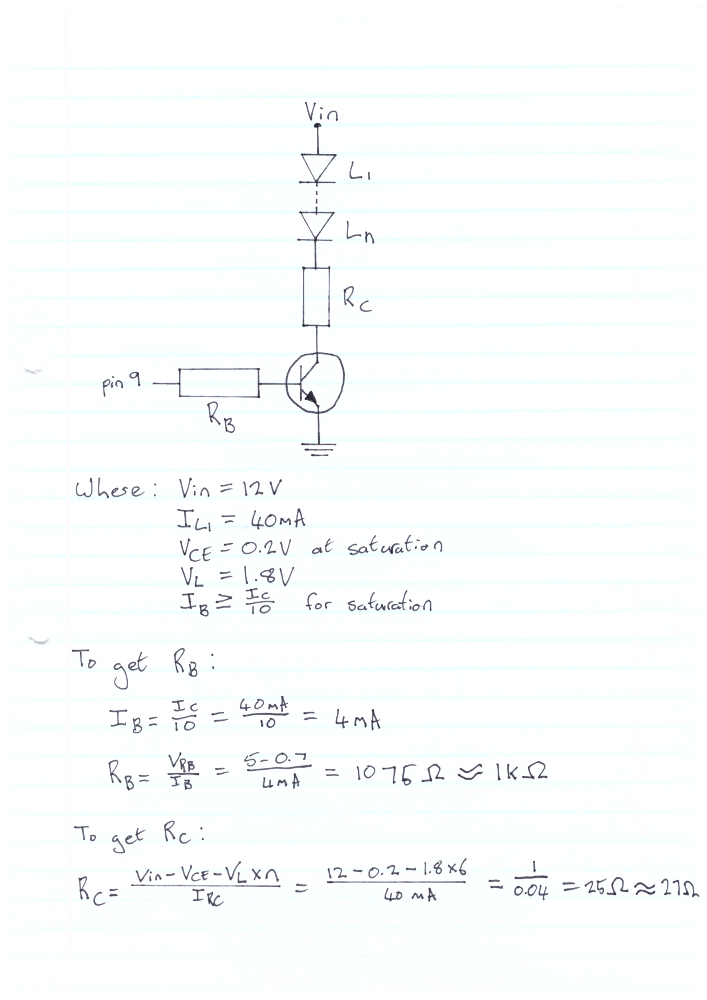 Vin
L1
Ln
RC
pin 9
RB
Where: Vin = 12V
IL1 = 40mA
VCE = 0.2V at saturation
VL = 1.8V
IB ≥ IC/10 for saturation
To get RB:
IB = IC/10 = 40mA/10 = 4mA
RB = VRB/IB = 5-0.7/4mA = 1075Ω ≈ 1kΩ
To get RC:
RC = Vin-VCE-VL×n/IRC = 12-0.2-1.8×6/40mA = 1/0.04 = 25Ω ≈ 27Ω